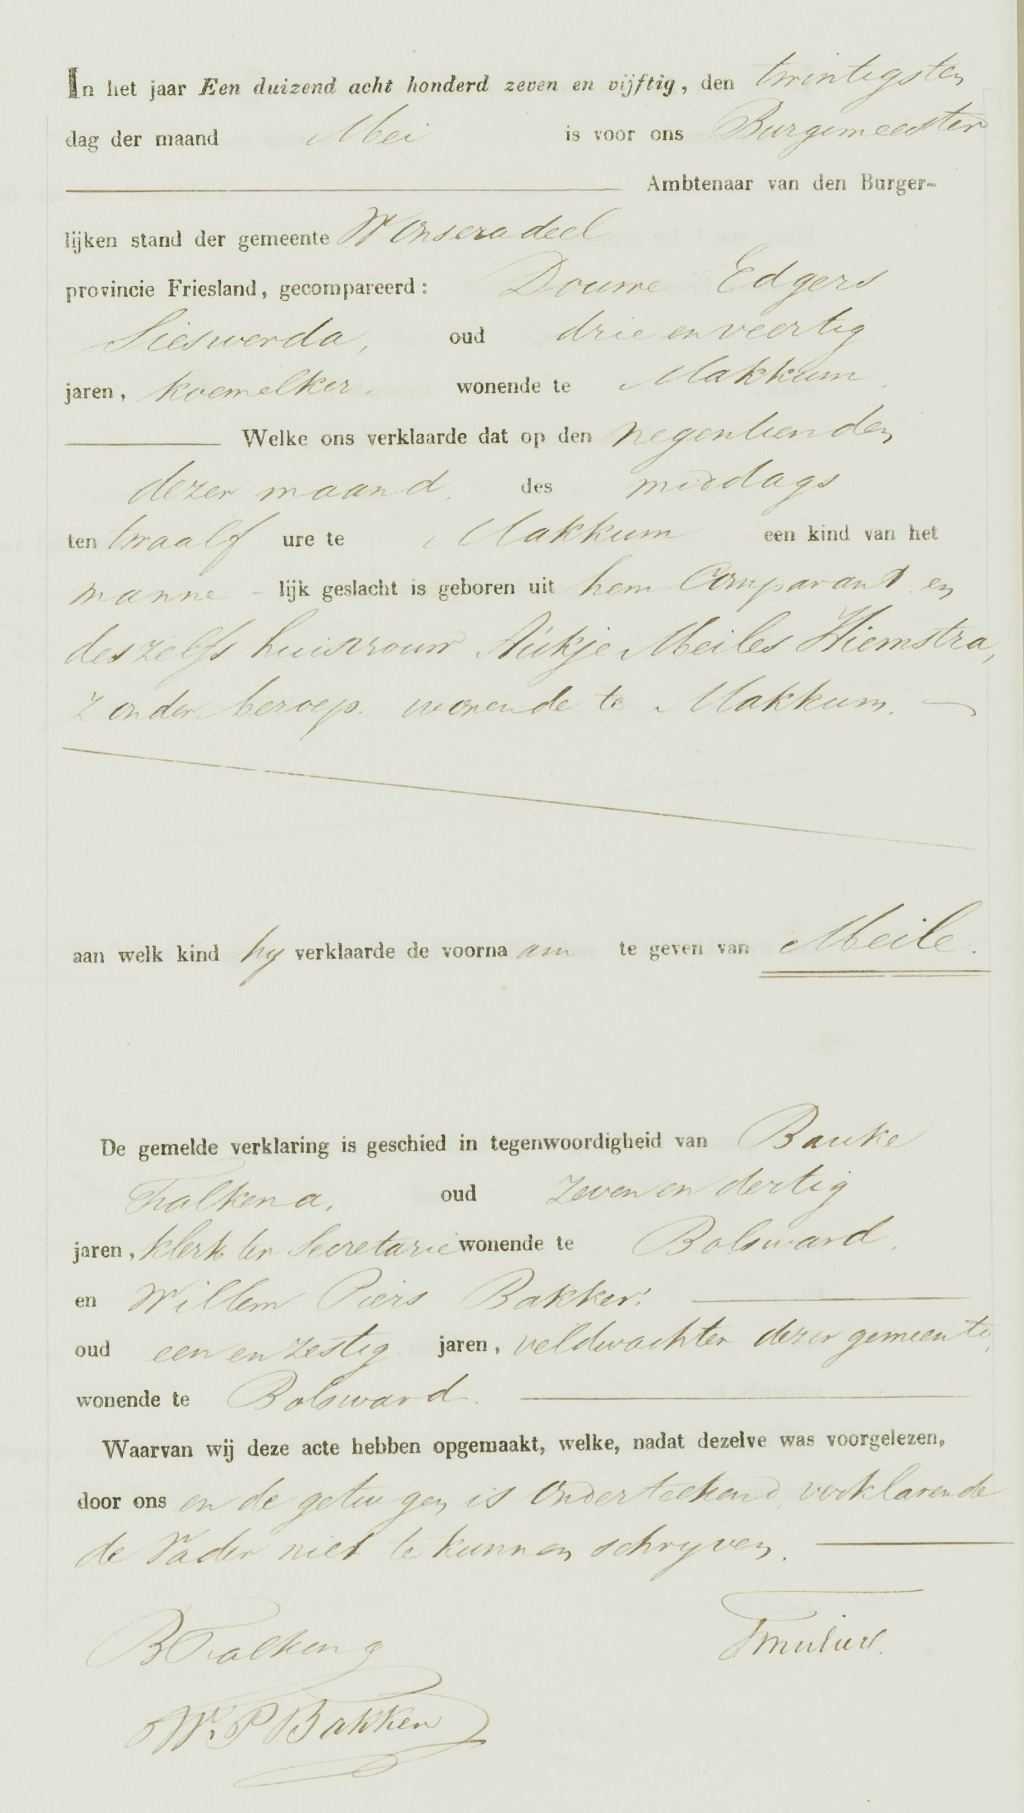 In het jaar Een duizend acht honderd zeven en vijftig, den twintigsten
dag der maand Mei is voor ons Burgemeester
Ambtenaar van den Burger-
lijken stand der gemeente Wonseradeel
provincie Friesland, gecompareerd: Douwe Edgers
Sieswerda, oud drie en veertig
jaren, koemelker, wonende te Makkum.
Welke ons verklaarde dat op den negentienden
dezer maand, des middags
ten twaalf ure te Makkum een kind van het
manne - lijk geslacht is geboren uit hem Comparant en
deszelfs huisvrouw Aukje Meiles Hiemstra,
zonder beroep, wonende te Makkum.
aan welk kind hy verklaarde de voornaam te geven van Meile.
De gemelde verklaring is geschied in tegenwoordigheid van Bauke
Falkena, oud zeven en dertig
jaren, klerk ter Secretarie wonende te Bolsward.
en Willem Piers Bakker.
oud een en zestig jaren, veldwachter dezer gemeente,
wonende te Bolsward.
Waarvan wij deze acte hebben opgemaakt, welke, nadat dezelve was voorgelezen,
door ons en de getuigen is onderteekend, verklarende
de Vader niet te kunnen schryven.
B Falkena
W. P Bakker